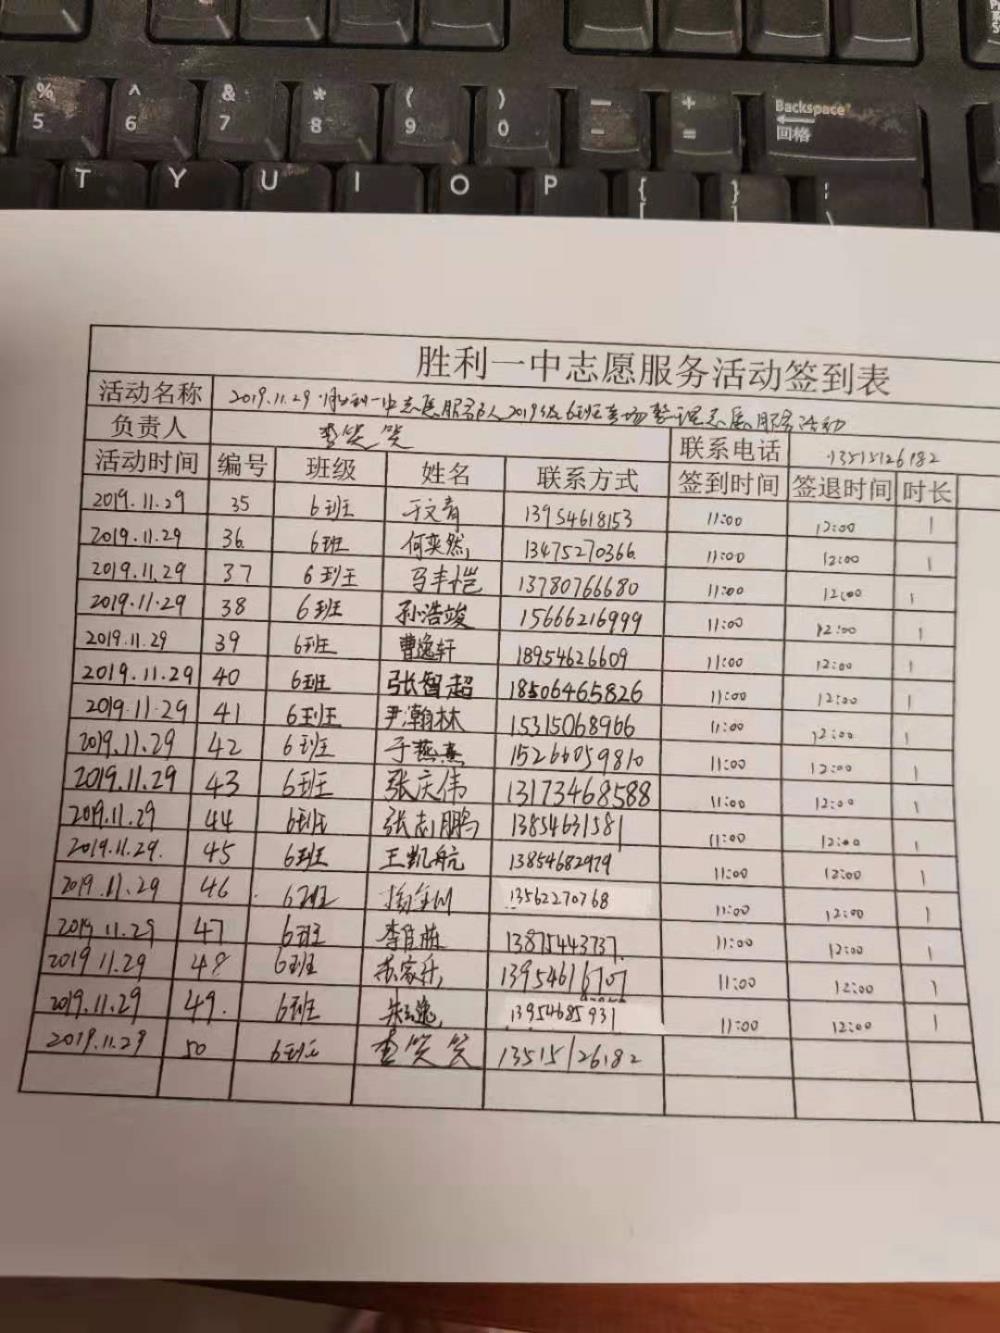 % ^ & * ( ) — + Backspace
5 6 7 8 9 0 - = 回格
T Y U I O P { }
[ ] \
胜利一中志愿服务活动签到表
活动名称 2019.11.29 胜利一中志愿服务人2019级6班考场整理志愿服务活动
负责人 查笑笑 联系电话 13515126182
活动时间 编号 班级 姓名 联系方式 签到时间 签退时间 时长
2019.11.29 35 6班 于文青 13954618153 11:00 12:00 1
2019.11.29 36 6班 何奕然 13475270366 11:00 12:00 1
2019.11.29 37 6班 马丰恺 13780766680 11:00 12:00 1
2019.11.29 38 6班 孙浩竣 15666216999 11:00 12:00 1
2019.11.29 39 6班 曹逸轩 18954626609 11:00 12:00 1
2019.11.29 40 6班 张智超 18506465826 11:00 12:00 1
2019.11.29 41 6班 尹瀚林 15315068966 11:00 12:00 1
2019.11.29 42 6班 于燕熹 15266059810 11:00 12:00 1
2019.11.29 43 6班 张庆伟 13173468588 11:00 12:00 1
2019.11.29 44 6班 张志鹏 13854631581 11:00 12:00 1
2019.11.29. 45 6班 王凯航 13854682979 11:00 12:00 1
2019.11.29 46 6班 13562270768 11:00 12:00 1
2019.11.29 47 6班 13875443737 11:00 12:00 1
2019.11.29 48 6班 苏家升 13954616707 11:00 12:00 1
2019.11.29 49. 6班 13954685931 11:00 12:00 1
2019.11.29 50 6班 查笑笑 13515126182